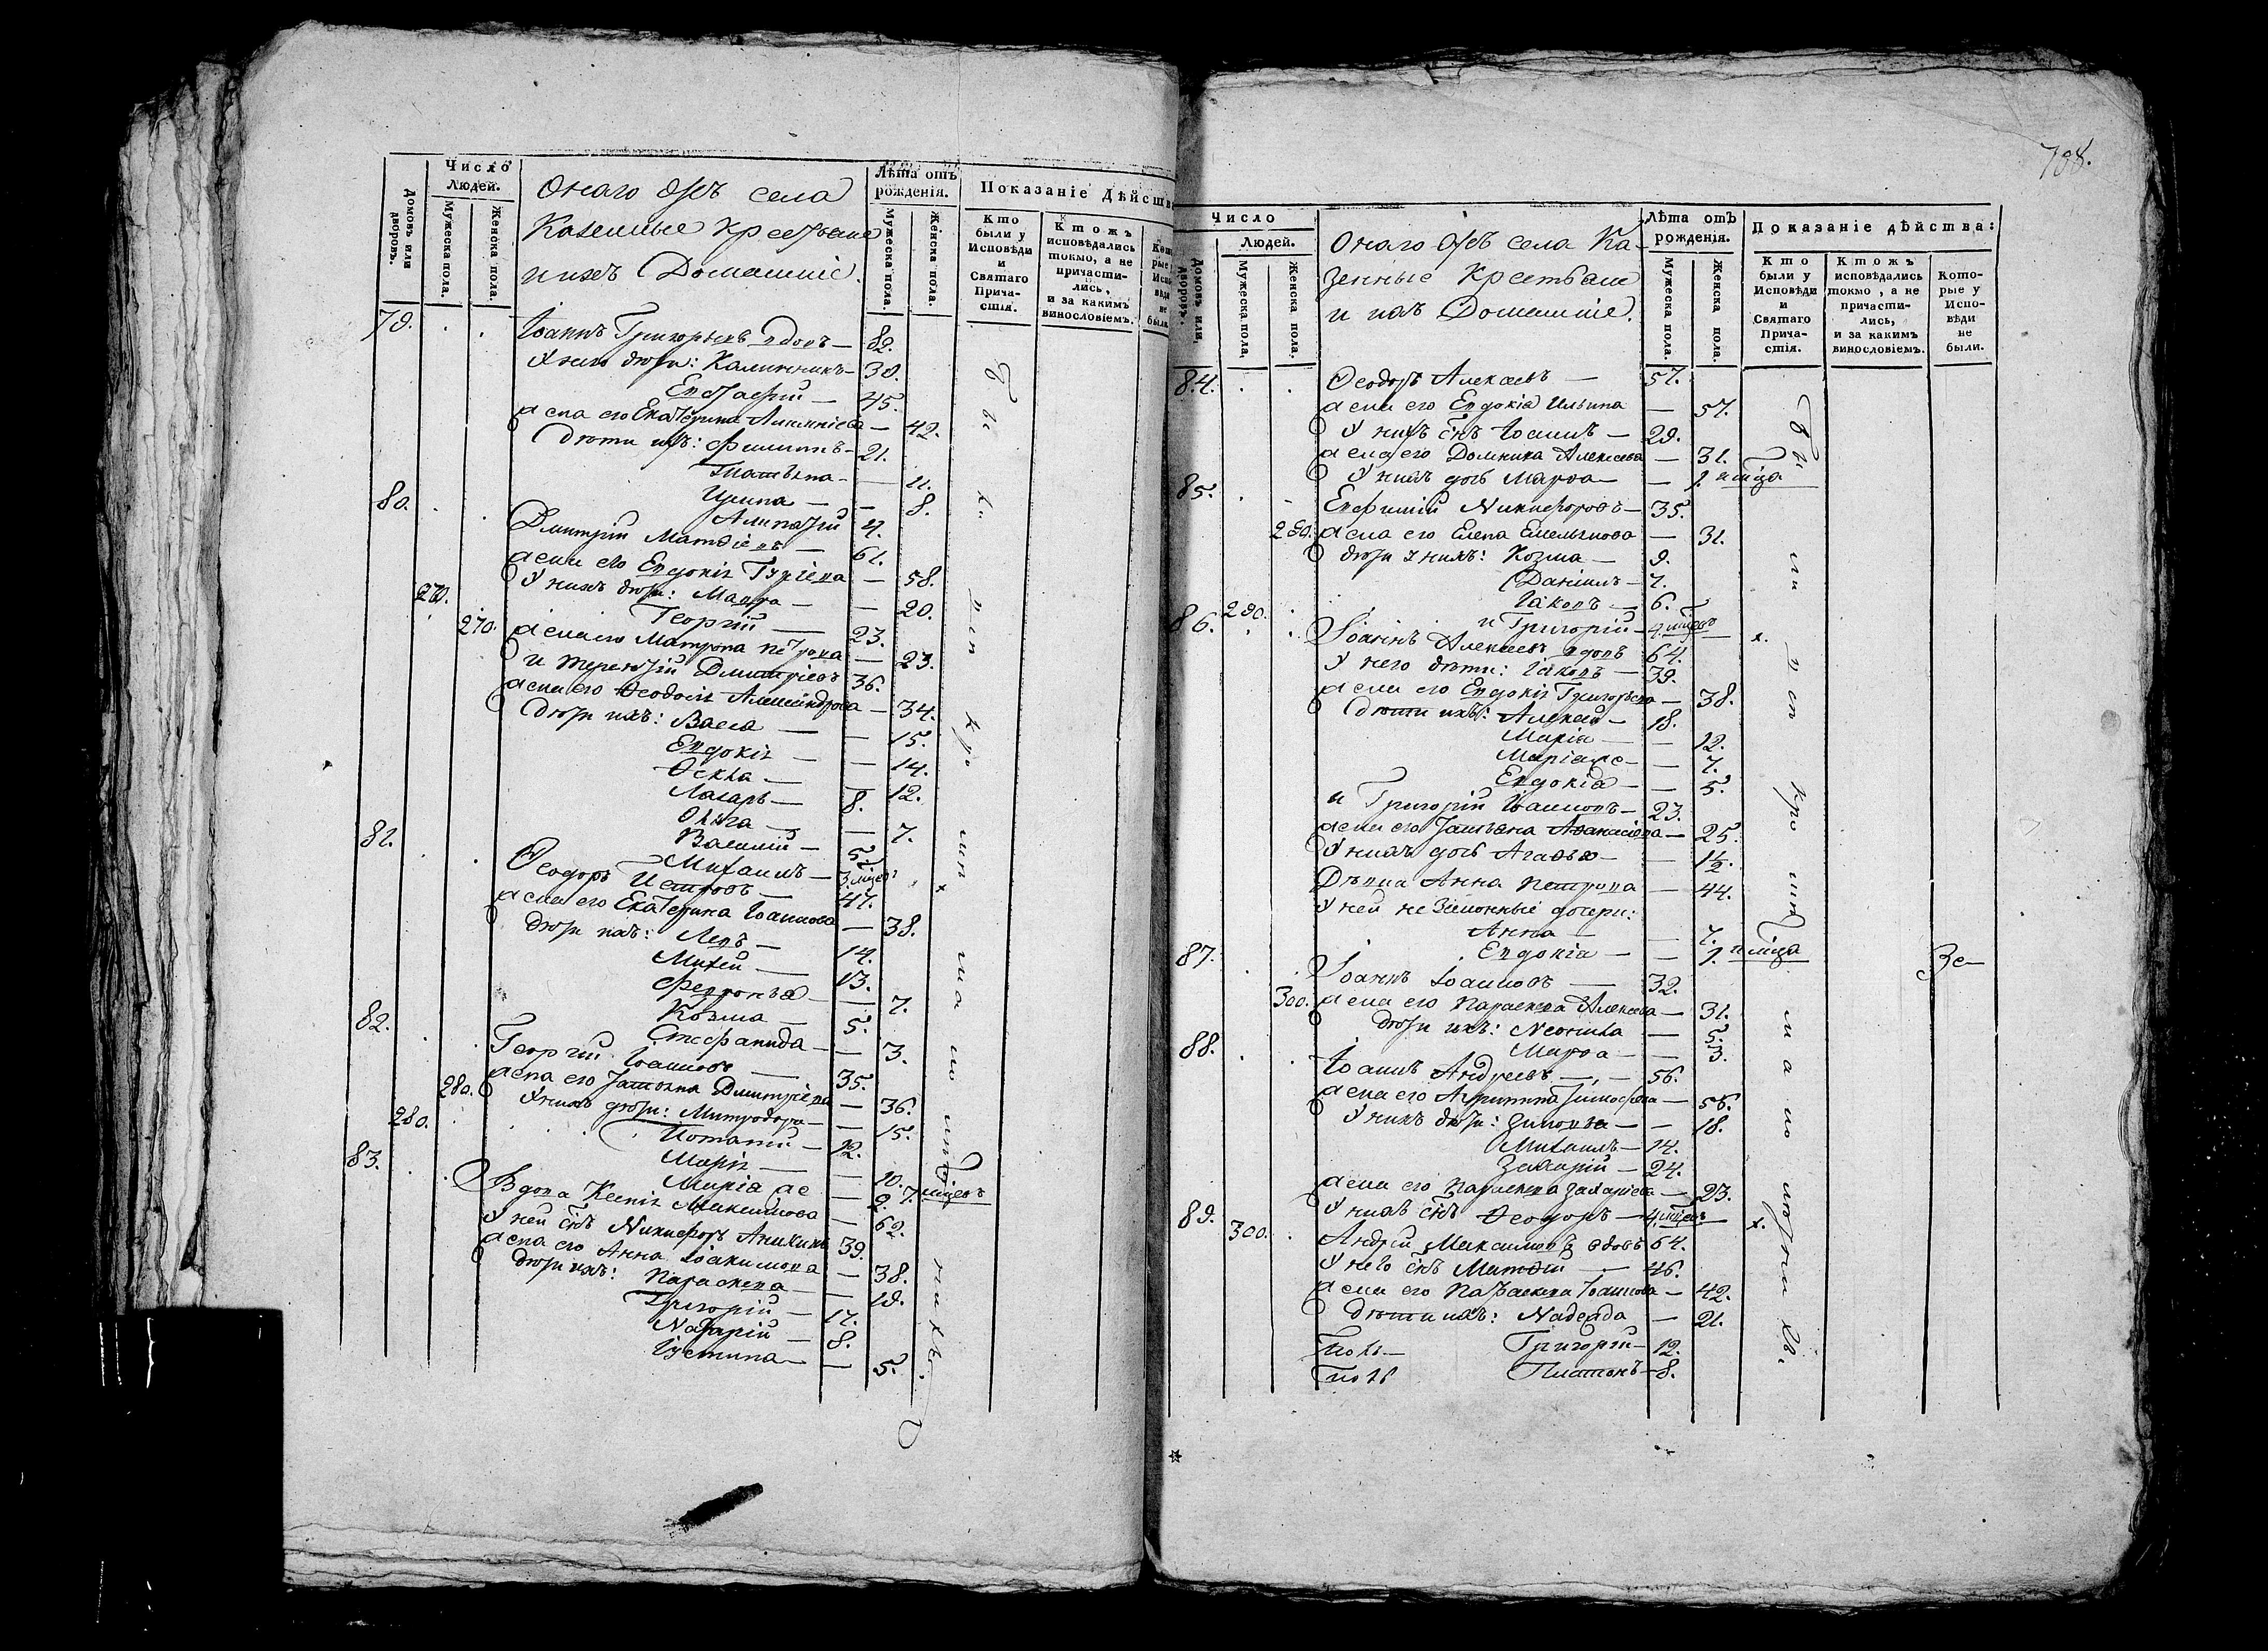 Число Людей.
Домовъ или дворовъ.
Мужеска пола.
Женска пола.
Онаго жъ села
Казенные крестьяне
и ихъ Домашніе.
Лѣта отъ рожденія.
Мужеска пола.
Женска пола.
Показаніе Дѣйств
Кто были у Исповѣди и Святаго Причастія.
Ктожъ исповѣдались токмо, а не причастились, и за какимъ винословіемъ.
Кото рые Испо вѣди не были.
79. Іоаннъ Григорьевъ вдовъ — 82.
У него дѣти: Каллинникъ — 38.
Евстафій — 45.
жена его Екатерина — 42.
Дѣти ихъ: Филиппъ — 21.
Татьяна — 11.
Ирина — 8.
Алипатій 4.
80. Дмитрій Матѳіевъ — 61.
жена его Евдокія — 58.
У нихъ дѣти: Мавра — 20.
270. Георгій — 23.
270. жена его Матрона Петрова — 23.
и Терентій Дмитріевъ 36.
жена его Ѳеодосія Александрова — 34.
Дѣти ихъ: Васса — 15.
Евдокія — 14.
Ѳекла — 12.
Лазарь — 8.
Ольга — 7.
Василій — 5.
Михаилъ — 3 мцев
81. Ѳеодоръ Петровъ — 47.
жена его Екатерина Іоаннова — 38.
Дѣти ихъ: Левъ — 14.
Михей — 13.
Февронья — 7.
Козма — 5.
Стефанида — 3.
82. Георгій Іоанновъ — 35.
280. жена его Татьяна Дмитріева — 36.
У нихъ дѣти: Митродора — 15.
280. Потапій — 12.
Марія — 10.
Марія же — 2. 7 мцевъ
83. Вдова Ксенія Максимова — 62.
У ней снъ Никифоръ 39.
жена его Анна Іоакимова — 38.
Дѣти ихъ: Параскева — 19.
Григорій — 17.
Назарій — 8.
Іустина — 5.
Бы ли у исповѣди
788.
Число
Людей.
Домовъ или дворовъ.
Мужеска пола.
Женска пола.
Онаго жъ села Ка-
зенные Крестьяне
и ихъ Домашніе.
Лѣта отъ рожденія.
Мужеска пола.
Женска пола.
Показаніе дѣйства:
Кто были у Исповѣди и Святаго Причастія.
Ктожъ исповѣдались токмо, а не причастились, и за какимъ винословіемъ.
Которые у Исповѣди не были.
84. Ѳеодоръ Алексѣевъ — 57.
жена его Евдокія Ильина — 57.
У нихъ снъ Іоаннъ — 29.
жена его Домника Алексѣева — 31.
У нихъ дочь Марѳа — 1 мца
85. Евфимій Никифоровъ — 35.
290. жена его Елена Емельянова — 31.
дѣти у нихъ: Козма — 9.
Даніилъ — 7.
290. Іаковъ — 6.
и Григорій — 4 мцевъ
86. Іоаннъ Алексѣевъ вдовъ 64.
У него дѣти: Іаковъ — 39.
жена его Евдокія Григорьева — 38.
Дѣти ихъ: Алексѣй — 18.
Марія — 12.
Марія же — 7.
Евдокія — 5.
и Григорій Іоанновъ — 23.
жена его Татьяна Аѳанасіева — 25.
У нихъ дочь Агаѳья — 1½.
Дѣвка Анна Петрова — 44.
У ней незаконные дочери:
Анна — 7.
Евдокія — 1 мца
87. Іоаннъ Іоанновъ — 32.
300. жена его Параскева Алексѣева — 31.
Дѣти ихъ: Неонила — 5.
Марѳа — 3.
88. Іоаннъ Андреевъ — 56.
жена его Агрипина Тимофеева — 56.
У нихъ дѣти: Зиновья — 18.
Михаилъ — 14.
Захарій — 24.
жена его Параскева Захаріева — 23.
У нихъ снъ Ѳеодоръ — 4 мцевъ
89. Андрей Максимовъ вдовъ 64.
300. У него снъ Матѳій — 46.
жена его Параскева Іоаннова — 42.
Дѣти ихъ: Надежда — 21.
Григорій — 12.
Платонъ — 8.
Зе—